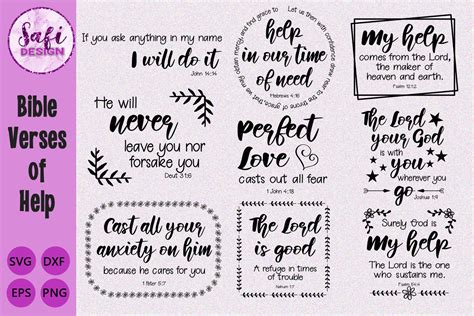 Safi
DESIGN
Bible
Verses
of
Help
SVG
DXF
EPS
PNG
If you ask anything in my name
I will do it
John 14:14
Let us then with confidence draw near to the throne of grace that we may obtain mercy and find grace to
help
in our time
of need
Hebrews 4:16
My help
comes from the Lord,
the maker of
heaven and earth.
Psalm
He will
never
leave you nor
forsake you
Deut 31:6
Perfect
Love
casts out all fear
1 John 4:18
The Lord
your God
is with
you
wherever you
go
Joshua 1:9
Cast all your
anxiety on him
because he cares for you
1 Peter 5:7
The Lord
is good
A refuge in times
of trouble
Nahum 1:7
Surely God is
My help
The Lord is the one
who sustains me.
Psalm 54:4